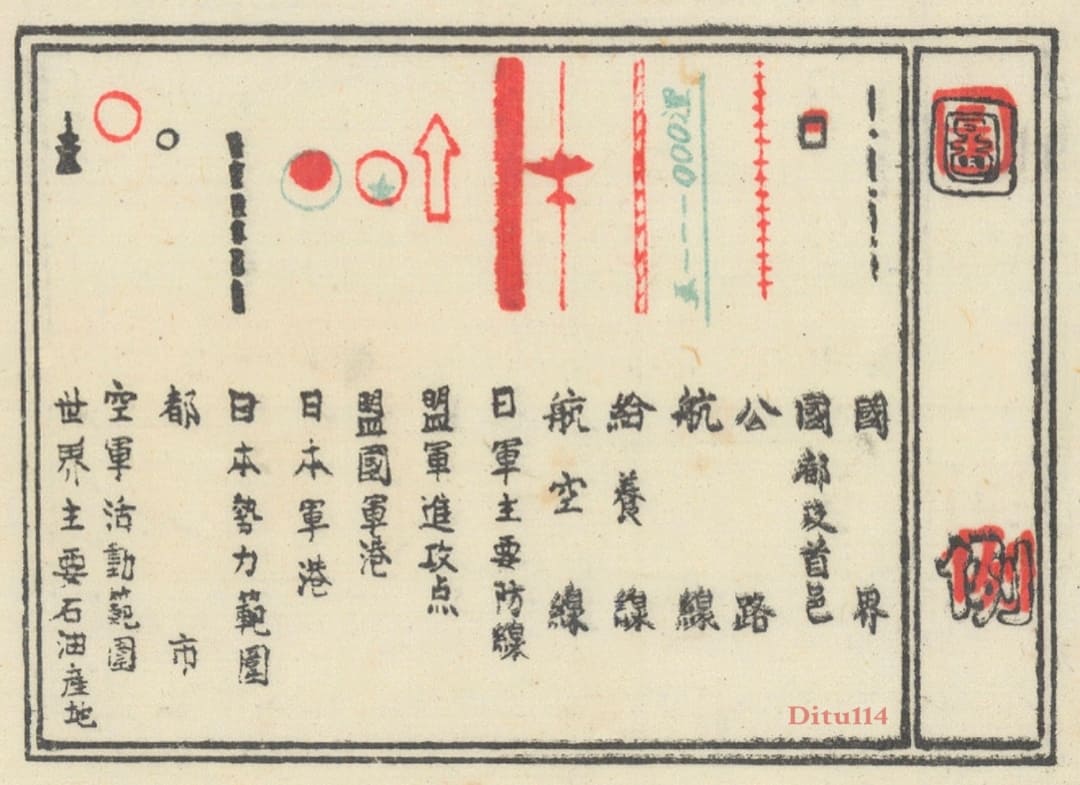 圖例
國界
國都及首邑
公路
航線
浬000---
給養線
航空線
日軍主要防線
盟軍進攻点
盟國軍港
日本軍港
日本勢力範圍
都市
空軍活動範圍
世界主要石油產地
Ditu114